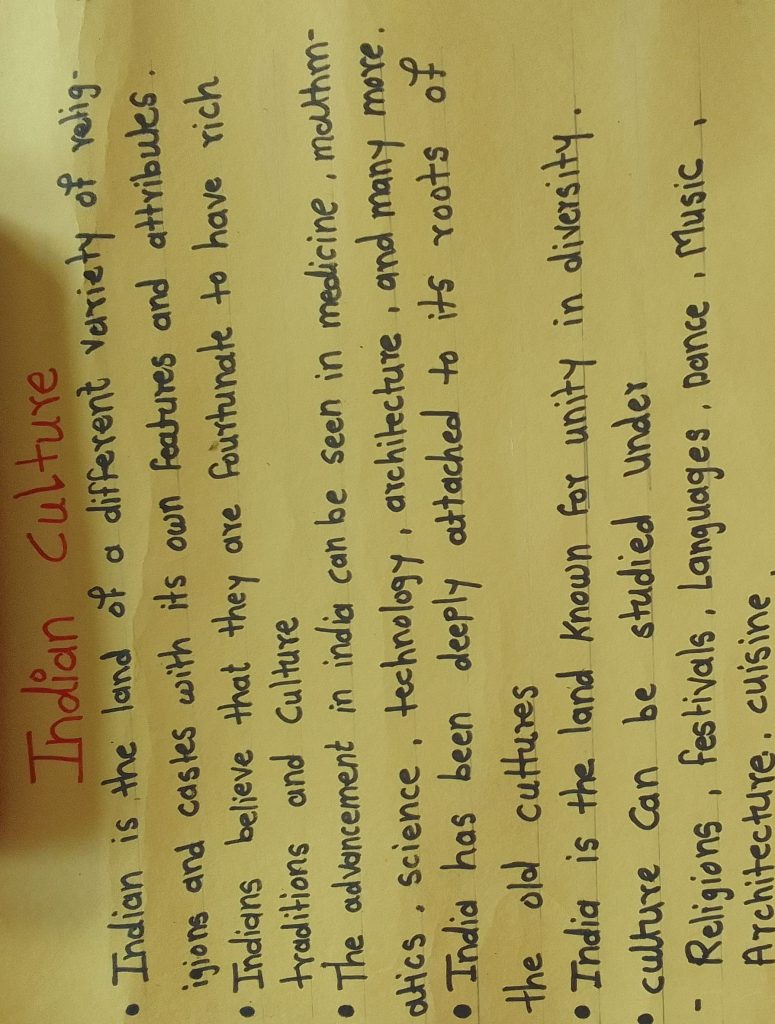 Indian Culture
• Indian is the land of a different variety of relig-
igions and castes with its own features and attributes.
• Indians believe that they are fourtunate to have rich
traditions and Culture
• The advancement in india can be seen in medicine, mathm-
atics, science, technology, architecture, and many more.
• India has been deeply attached to its roots of
the old cultures
• India is the land known for unity in diversity.
• culture can be studied under
- Religions, festivals, Languages, Dance, Music,
Architecture, cuisine.